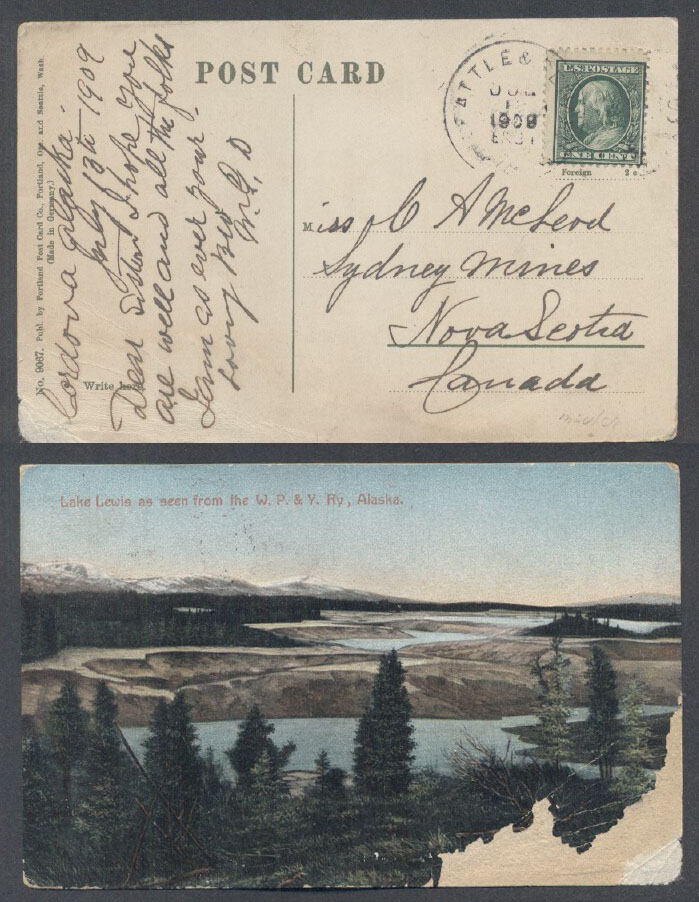 POST CARD
No. 9067. Publ. by Portland Post Card Co., Portland, Ore. and Seattle, Wash.
(Made in Germany.)
Cordova Alaska.
July 13th 1909
Dear Sister I hope you
are well and all the folks
I am as ever your
Loving Bro
M. G. D
Write here
SEATTLE &
JUL
1909
U.S. POSTAGE
ONE CENT
Foreign 2 c.
Miss C A McLeod
Sydney Mines
Nova Scotia
Canada
Lake Lewis as seen from the W. P. & Y. Ry., Alaska.